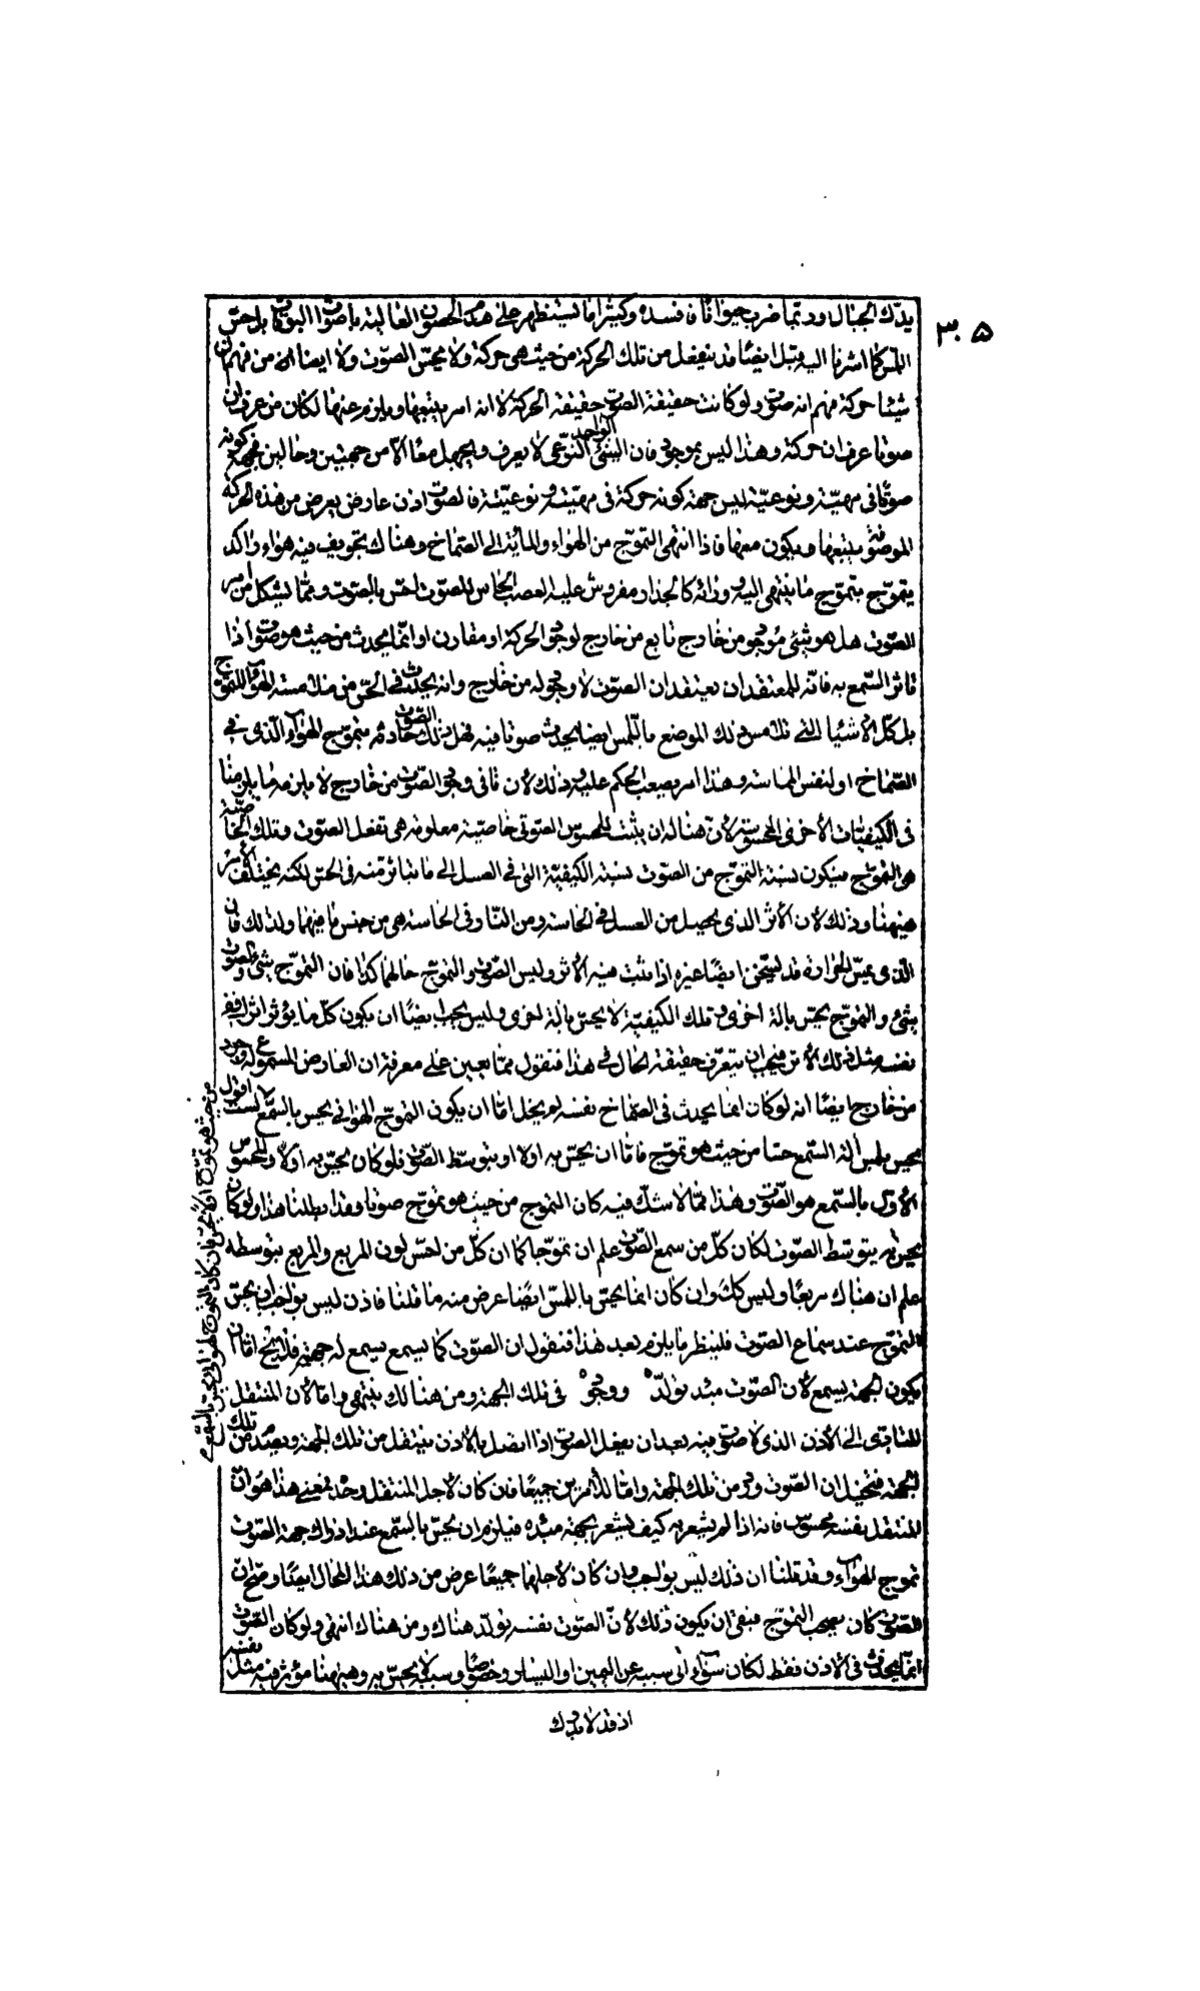 ٣٠٥
يدك الجبال وربما ضرب حيوانا فافسده وكثيرا ما يستظهر على هدم الحصون العالية باصوات البوقات بل حس
اللمس كما اشرنا اليه قبل ايضا قد ينفعل من تلك الحركة من حيث هي حركة ولا يحس الصوت ولا ايضا ان من فهم ان
شيئا حركة فهم انه صوت ولو كانت حقيقة الصوت حقيقة الحركة لا انه امر يتبعها ويلزم عنها لكان من عرف ان
صوتا عرف ان حركة وهذا ليس بموجود فان الشئ الواحد النوعى لا يعرف ويجهل معا الا من جهتين وحالين فجهة كونه
صوتا فى مهيته ونوعيته ليس جهة كونه حركة فى مهيته ونوعيته فالصوت اذن عارض يعرض من هذه الحركة
الموصوفة يتبعها ويكون معها فاذا انتهى التموج من الهواء والماء الى الصماخ وهناك تجويف فيه هواء راكد
يتموج بتموج ما ينتهى اليه وورائه كالجدار مفروش عليه العصب الحاس للصوت احس بالصوت ومما يشكل من امر
الصوت هل هو شئ موجود من خارج تابع من خارج لوجود الحركة او مقارن او انما يحدث من حيث هو صوت اذا
تاثر السمع به فانه للمعتقد ان يعتقد ان الصوت لا وجود له من خارج وانه يحدث فى الحس من ملامسة الهواء المتموج
بل كل الاشياء التى تلامس ذلك الموضع باللمس ايضا يحدث صوتا فيه فهل ذلك الصوت حادث بتموج الهواء الذى فى
الصماخ او لنفس المماسة وهذا امر يصعب الحكم عليه وذلك لان نافى وجود الصوت من خارج لا يلزمه ما يلزم نفاة
فى الكيفيات الاخرى المحسوسة لان هنا له ان يثبت للمحسوس الصوتى خاصية معلومة هى تفعل الصوت وتلك الخاصية
هى التموج فيكون نسبة التموج من الصوت نسبة الكيفية التى فى العسل الى ما يتاثر منه فى الحس لكنه يختلف الامر
هيهنا وذلك لان الاثر الذى يحصل من العسل فى الحاسة ومن النار فى الحاسة هى من جنس ما فيهما ولذلك فان
الذى يمس الحرارة قد يسخن ايضا غيره اذا ثبت فيه الاثر وليس الصوت والتموج حالهما كذا فان التموج شئ والصوت
شئ والتموج يحس بالة اخرى وتلك الكيفية لا يحس بالة اخرى وليس يجب ايضا ان يكون كل ما يؤثر اثرا ففى
نفسه مثل ذلك الاثر فيجب ان يتعرف حقيقة الحال فى هذا فنقول مما يعين على معرفة ان العارض المسموع له وجود
من خارج ايضا انه لو كان انما يحدث فى الصماخ نفسه لم يخل اما ان يكون التموج الهوائى يحس بالسمع لست اقول
يحس بلمس الة السمع حسا من حيث هو تموج فاما ان يحس به اولا او بتوسط الصوت فلو كان يحس به اولا والمحسوس
الاول بالسمع هو الصوت وهذا مما لا شك فيه كان التموج من حيث هو تموج صوتا وقد ابطلنا هذا ولو كان
يحس به بتوسط الصوت لكان كل من سمع الصوت علم ان تموجا كما ان كل من احس لون المربع والمربع بتوسطه
علم ان هناك مربعا وليس كك وان كان انما يحس باللمس ايضا عرض منه ما قلنا فاذن ليس بواجب ان يحس
التموج عند سماع الصوت فلينظر ما يلزم بعد هذا فنقول ان الصوت كما يسمع يسمع له جهة فلا يخ اما ان
يكون الجهة يسمع لان الصوت مبدء تولده ووجوده فى تلك الجهة ومن هنالك ينتهى واما لان المنتقل
المتادى الى الاذن الذى لا صوت فيه بعد ان يفعل الصوت اذا اتصل بالاذن ينتقل من تلك الجهة ويصدم من تلك
الجهة فيتخيل ان الصوت ورد من تلك الجهة واما للامرين جميعا فان كان لاجل المنتقل وحده فمعنى هذا هو ان
المنتقل بنفسه محسوس فانه اذا لم يشعر به كيف يشعر بجهة مبدئه فيلزم ان يحس بالسمع عند ادراك جهة الصوت
تموج الهواء وقد قلنا ان ذلك ليس بواجب وان كان لاجلهما جميعا عرض من ذلك هذا المحال ايضا وصح ان
الصوت كان يصحب التموج فبقى ان يكون ذلك لان الصوت نفسه تولد هناك ومن هناك انتهى ولو كان الصوت
انما يحدث فى الاذن فقط لكان سواء اتى سببه عن اليمين او اليسار وخصوصا وسببه لا يحس به وهيهنا مؤثر فيه مثل نفسه
اذ قد لا يدرك
من حيث هو تموج او لا يحس فان كان التموج الهوائى يحس بالسمع